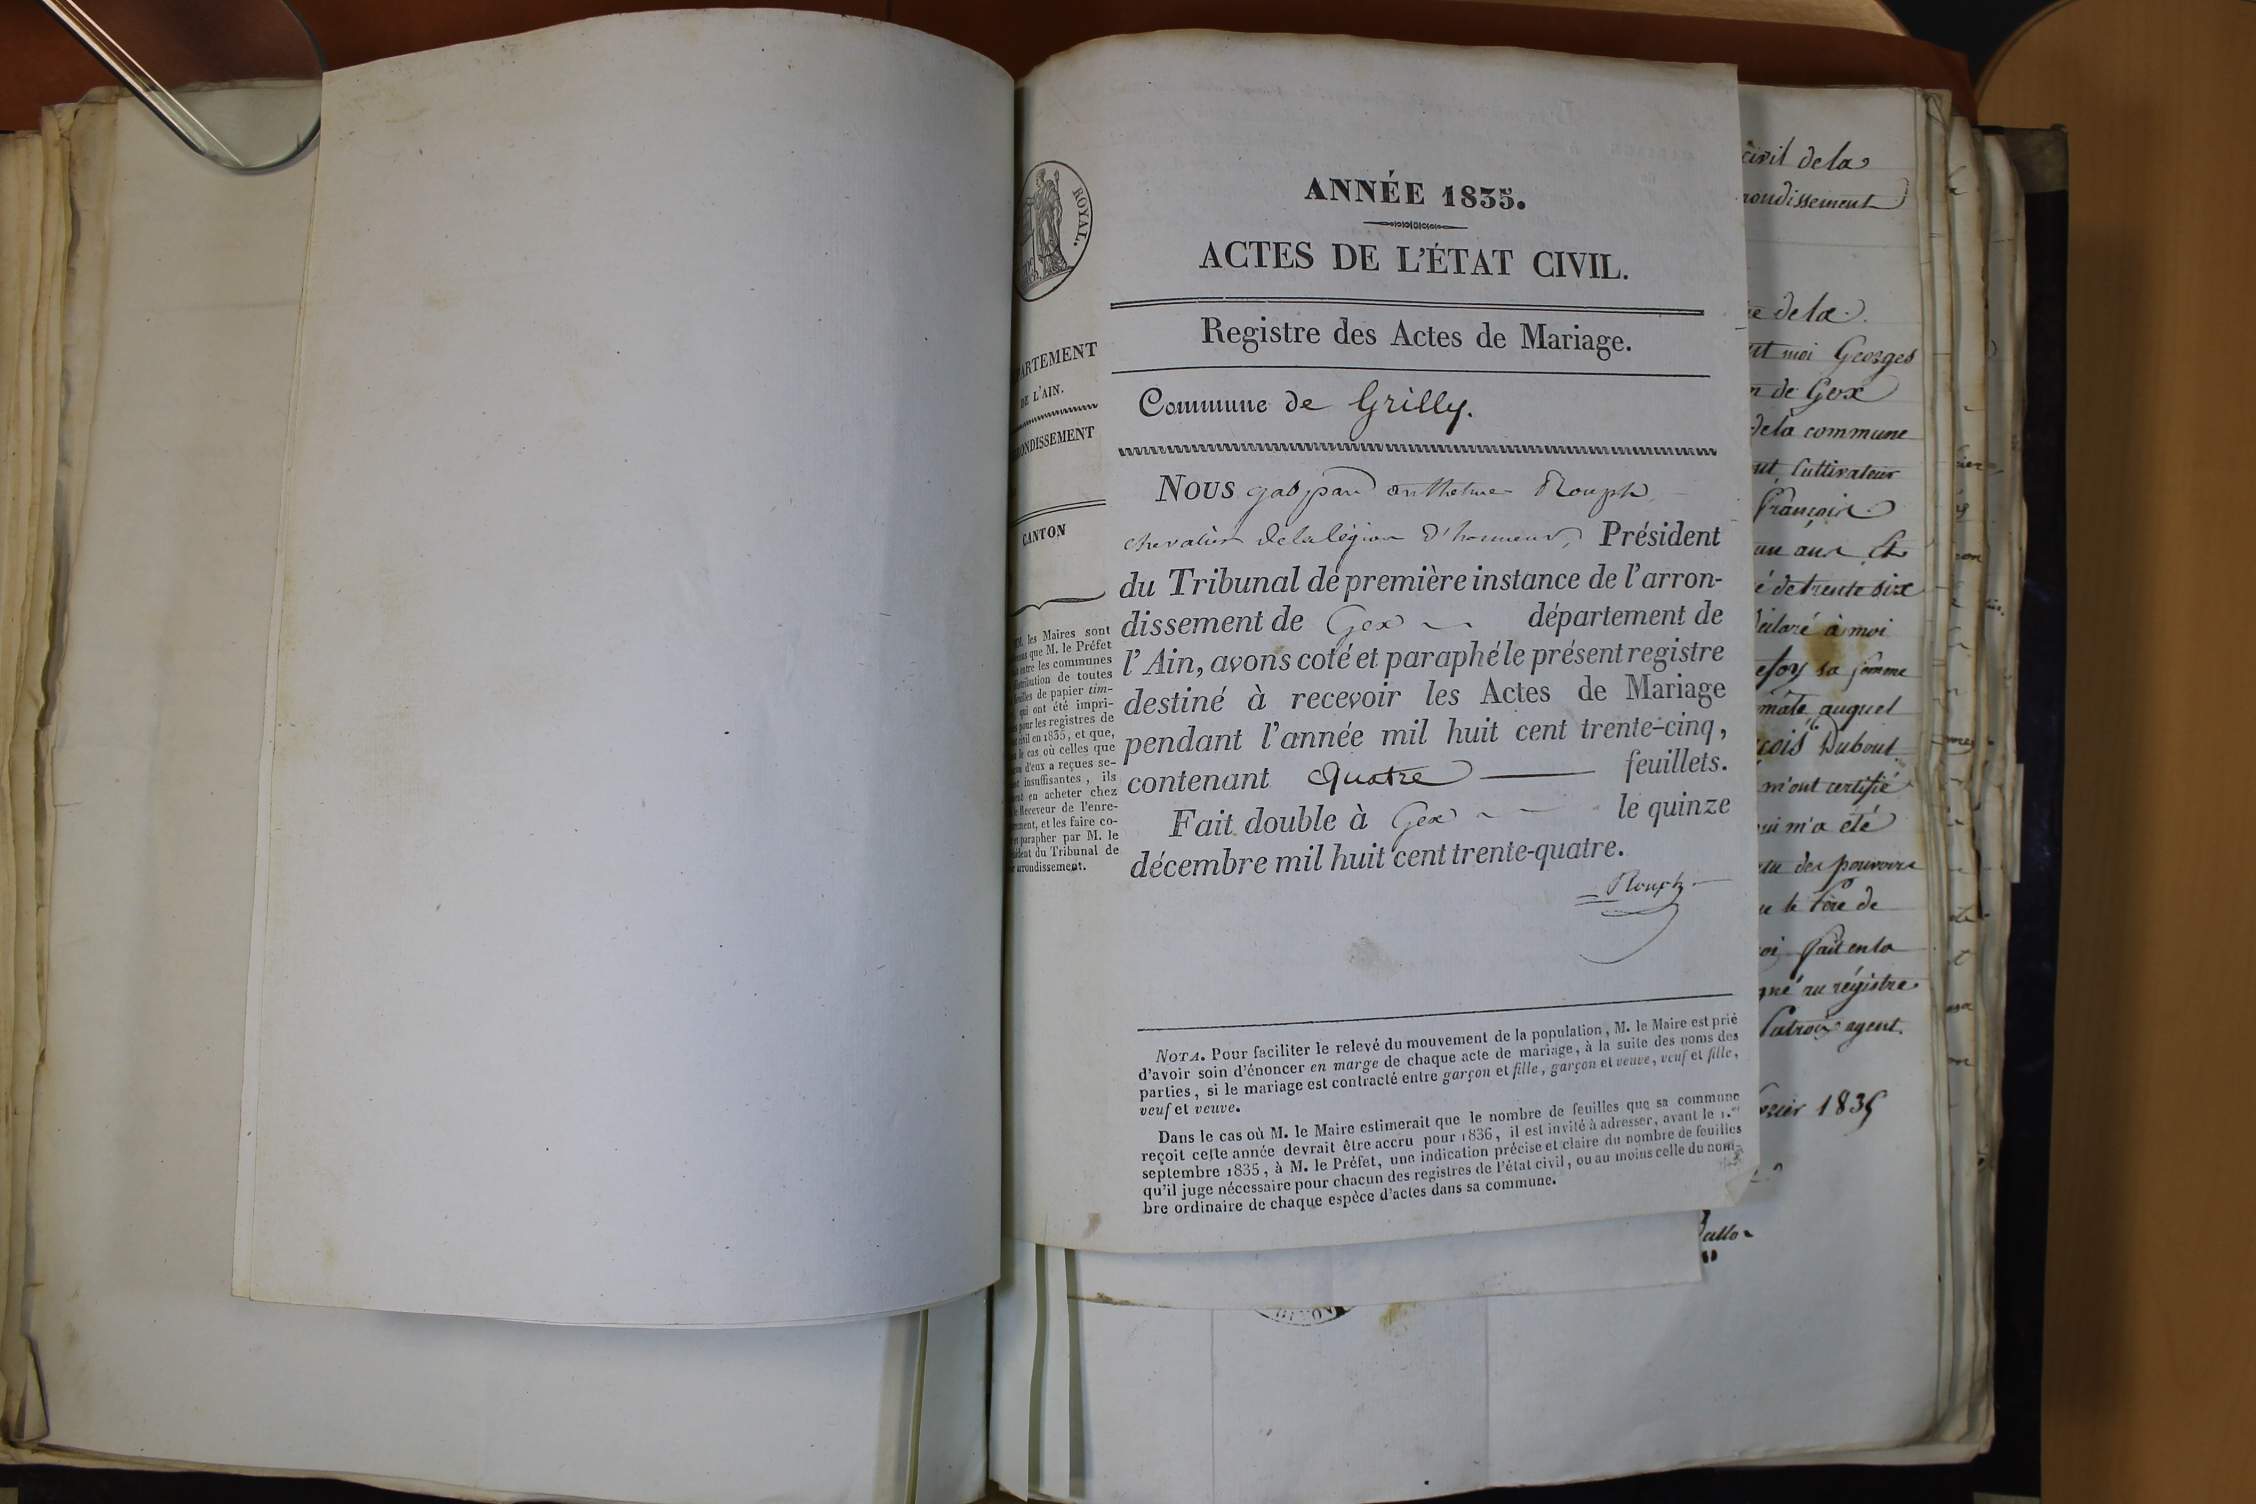 ROYAL.
ANNÉE 1835.
ACTES DE L'ÉTAT CIVIL.
Registre des Actes de Mariage.
Commune de Grilly.
NOUS gaspard anthelme Rouph
chevalier de la légion d'honneur, Président
du Tribunal de première instance de l'arron-
dissement de Gex département de
l'Ain, avons coté et paraphé le présent registre
destiné à recevoir les Actes de Mariage
pendant l'année mil huit cent trente-cinq,
contenant quatre feuillets.
Fait double à Gex le quinze
décembre mil huit cent trente-quatre.
Rouph
NOTA. Pour faciliter le relevé du mouvement de la population, M. le Maire est prié
d'avoir soin d'énoncer en marge de chaque acte de mariage, à la suite des noms des
parties, si le mariage est contracté entre garçon et fille, garçon et veuve, veuf et fille,
veuf et veuve.
Dans le cas où M. le Maire estimerait que le nombre de feuilles que sa commune
reçoit cette année devrait être accru pour 1836, il est invité à adresser, avant le 1.er
septembre 1835, à M. le Préfet, une indication précise et claire du nombre de feuilles
qu'il juge nécessaire pour chacun des registres de l'état civil, ou au moins celle du nom-
bre ordinaire de chaque espèce d'actes dans sa commune.
PARTEMENT
DE L'AIN.
ONDISSEMENT
CANTON
les Maires sont
que M. le Préfet
entre les communes
tribution de toutes
feuilles de papier tim-
qui ont été impri-
pour les registres de
civil en 1835, et que,
le cas où celles que
d'eux a reçues se-
insuffisantes, ils
en acheter chez
le Receveur de l'enre-
ment, et les faire co-
parapher par M. le
ident du Tribunal de
arrondissement.
civil de la
rondissement
de la
moi Georges
de Gex
de la commune
Cultivateur
François
un ans et
é de trente six
déclaré à moi
sa femme
auquel
çois Dubout
m'ont certifié
qui m'a été
des pouvoirs
le Père de
moi fait en la
gné au régistre
Patroix agent.
vrier 1835